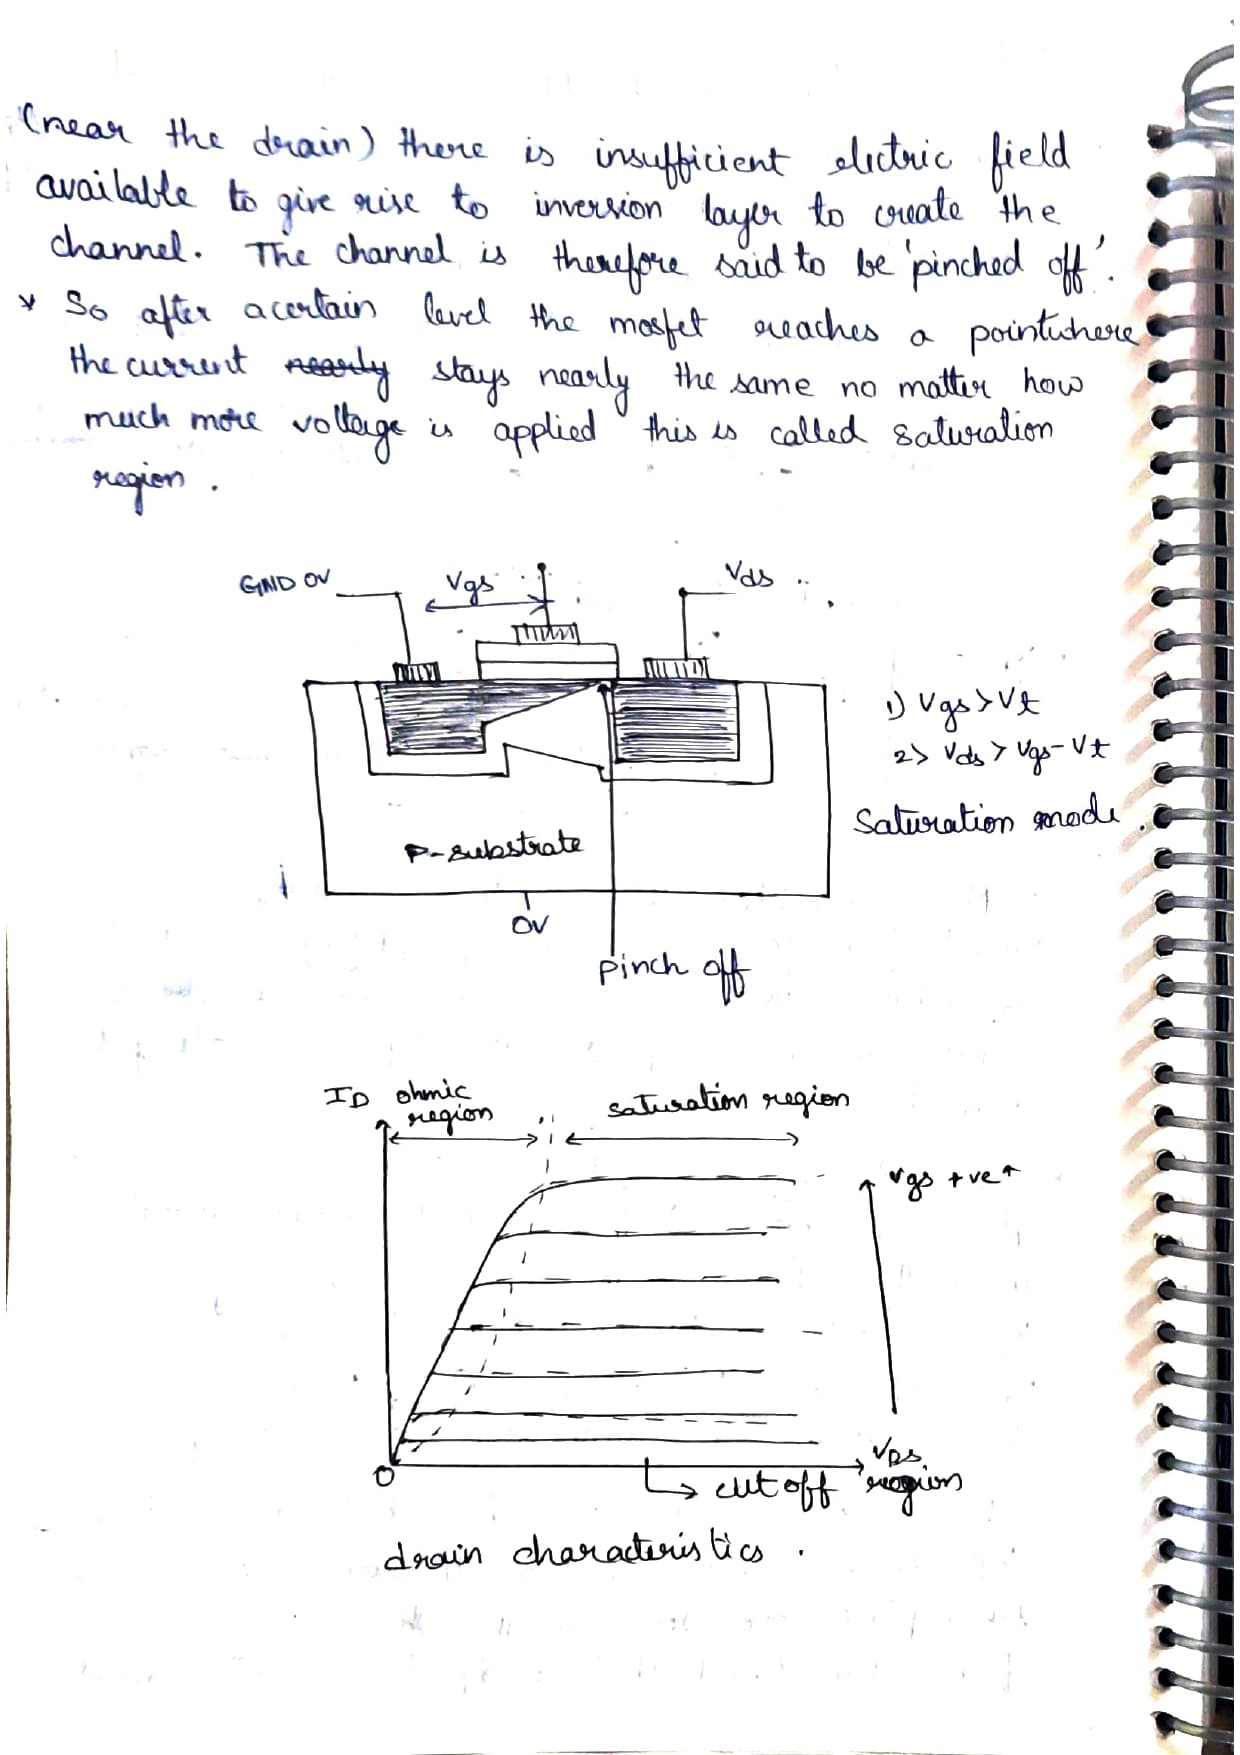 (near the drain) there is insufficient electric field
available to give rise to inversion layer to create the
channel. The channel is therefore said to be 'pinched off'.
* So after a certain level the mosfet reaches a point where
the current nearly stays nearly the same no matter how
much more voltage is applied this is called saturation
region.
GND 0V
Vgs
Vds
1) Vgs > Vt
2> Vds > Vgs - Vt
Saturation mode.
P-substrate
0V
Pinch off
ID ohmic
region
saturation region
Vgs +ve ↑
VDS
0
cut off region
drain characteristics.